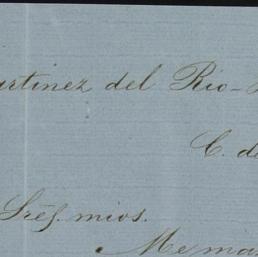 artinez del Rio
C. de
Sres. mios.
Me ma